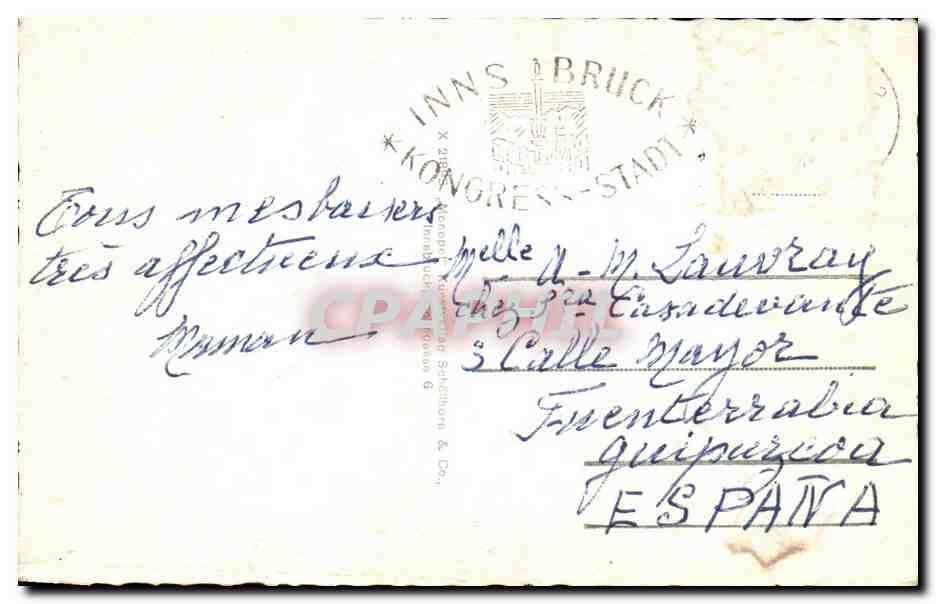 INNSBRUCK
KONGRESS-STADT
Tous mes baisers
très affectueux
Maman
Melle A-M. Lauvray
chez Sra Casadevante
3 Calle Mayor
Fuenterrabia
guipuzcoa
ESPAÑA
Schöllhorn & Co.,
Innsbruck
6
CPAPHIL